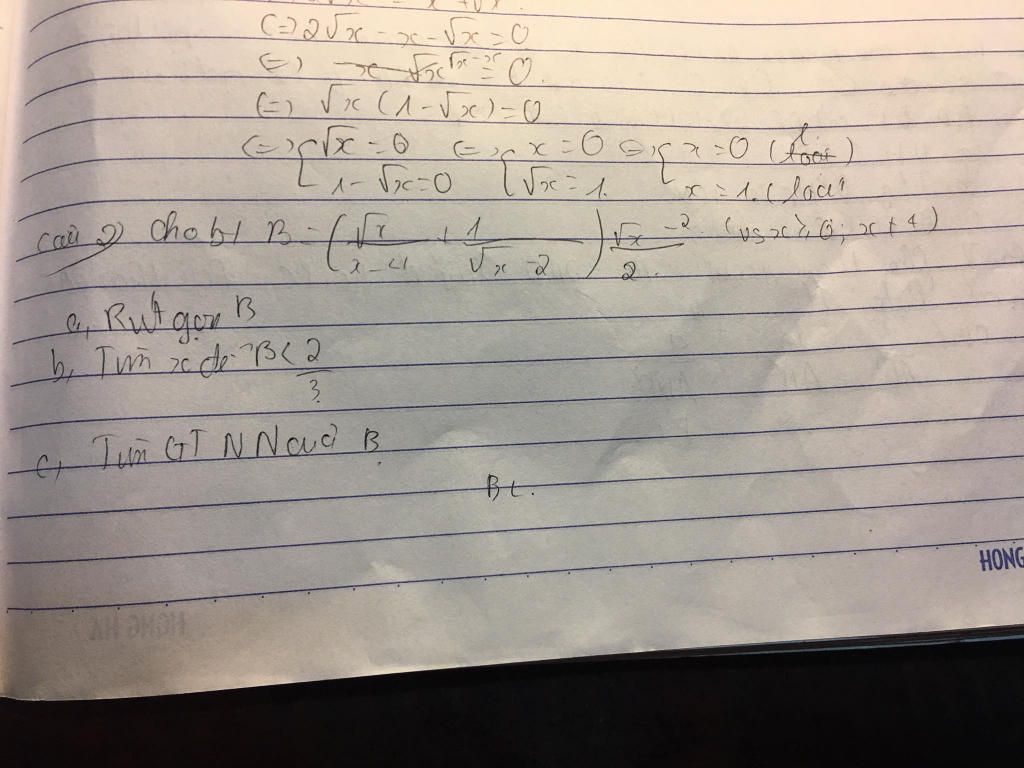 (=) 2√x - x - √x = 0
(=) √x - x = 0
(=) √x (1 - √x) = 0
(=) [√x = 0 (=) [x = 0 (=) [x = 0 (loại)
1 - √x = 0 √x = 1. x = 1. (loại
Câu 2) Cho bt B = (√x/(x-4) + 1/(√x-2)) (√x-2)/2. (vs x ≥ 0; x ≠ 4)
a, Rút gọn B
b, Tìm x để B < 2/3
c, Tìm GTNN của B
B <.
HONG